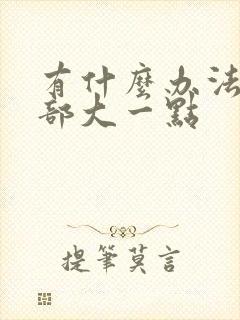 有什麼办法
部大一點
提筆莫言